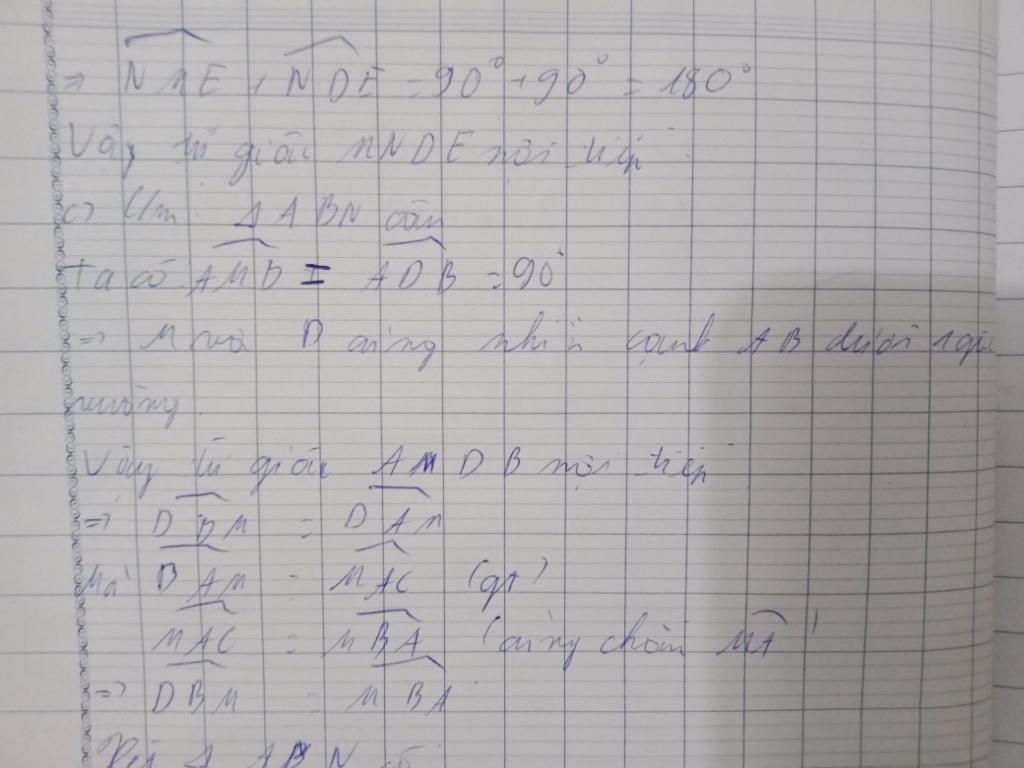 ⇒ NME + NDE = 90° + 90° = 180°
Vậy tứ giác MNDE nội tiếp.
c) C/m: Δ ABN cân
Ta có AMB = ADB = 90°
⇒ M và D cùng nhìn cạnh AB dưới 1 góc
vuông.
Vậy tứ giác AMDB nội tiếp
⇒ DBM = DAM
Mà DAM = MAC (gt)
MAC = MBA (cùng chắn MA)
⇒ DBM = MBA
Xét Δ ABN có